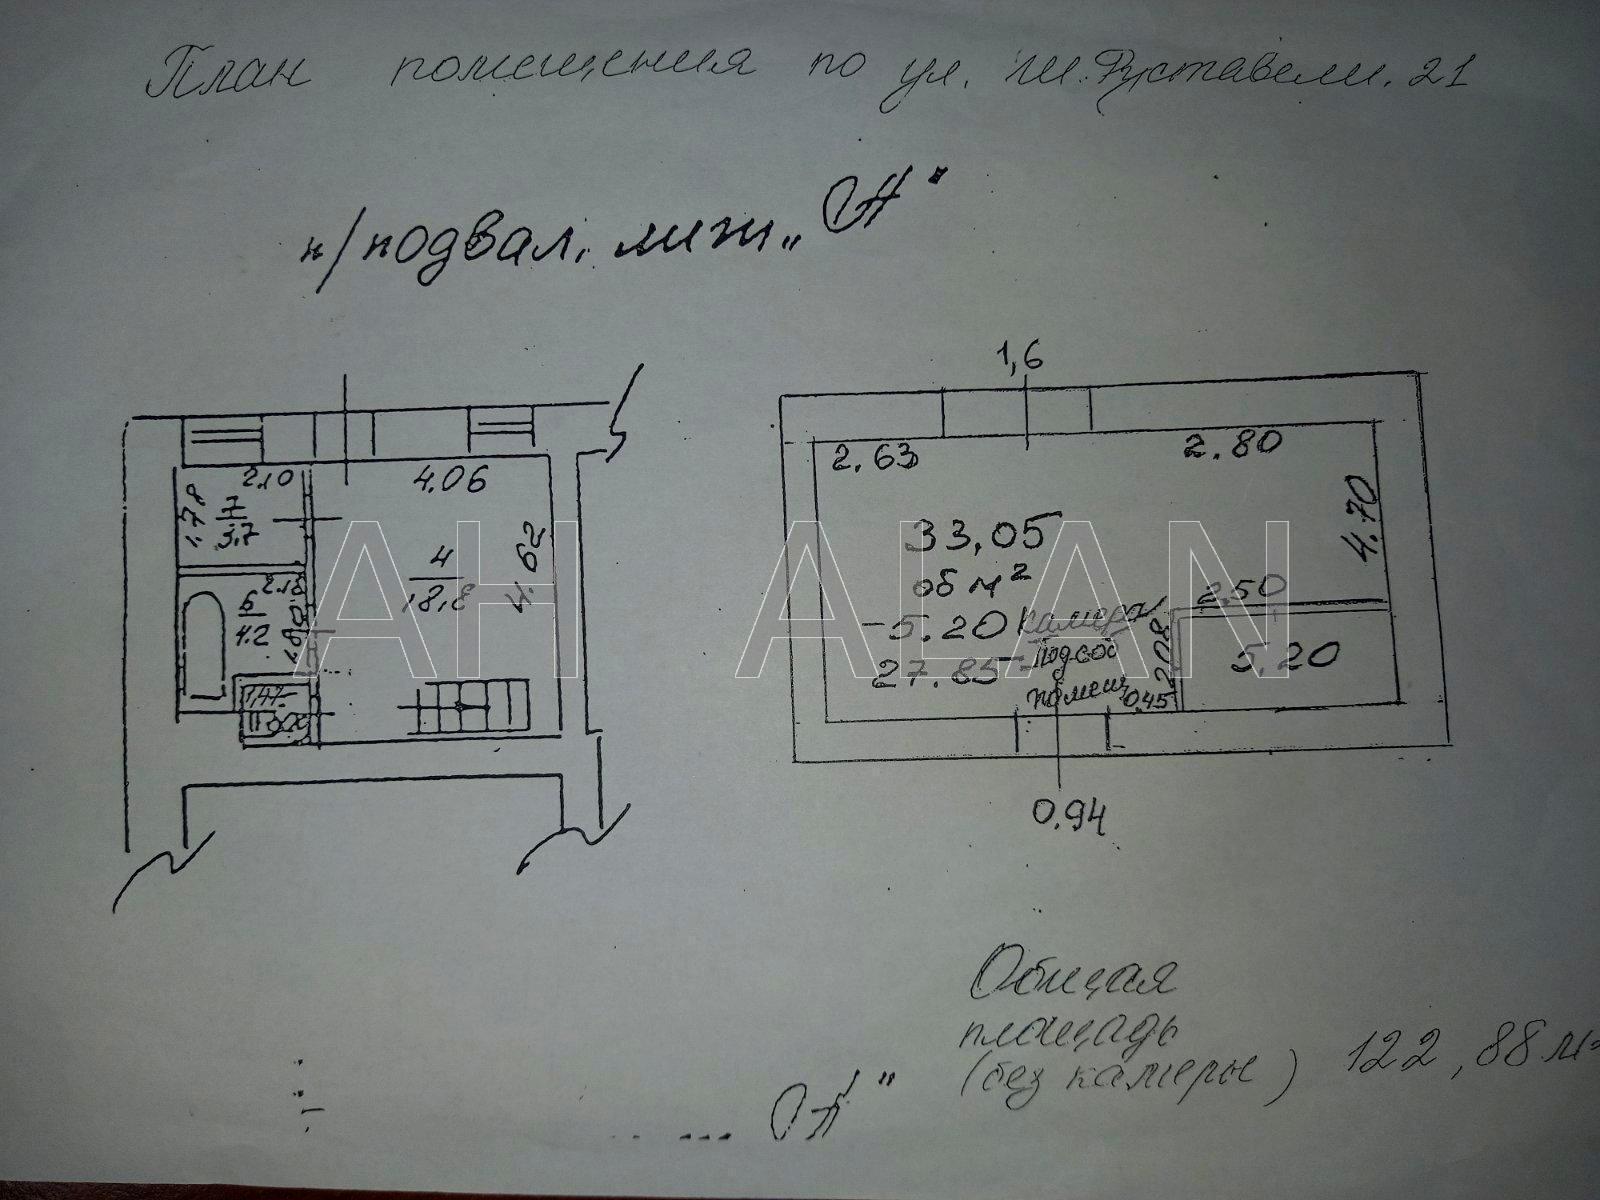 План помещения по ул. Ш. Руставели. 21
п/подвал, лит „А"
1,6
2.10
4.06
2.63
2.80
1.78
7
3.7
4.62
4.70
33,05
об м²
4
18,8
2.50
2.18
6
4.2
1.80
-5.20 камеры
27.85 - подсоб
помещ
2.08
5.20
0.45
0.94
АН ALAN
Общая
площадь
(без камеры) 122,88 м²
"А"